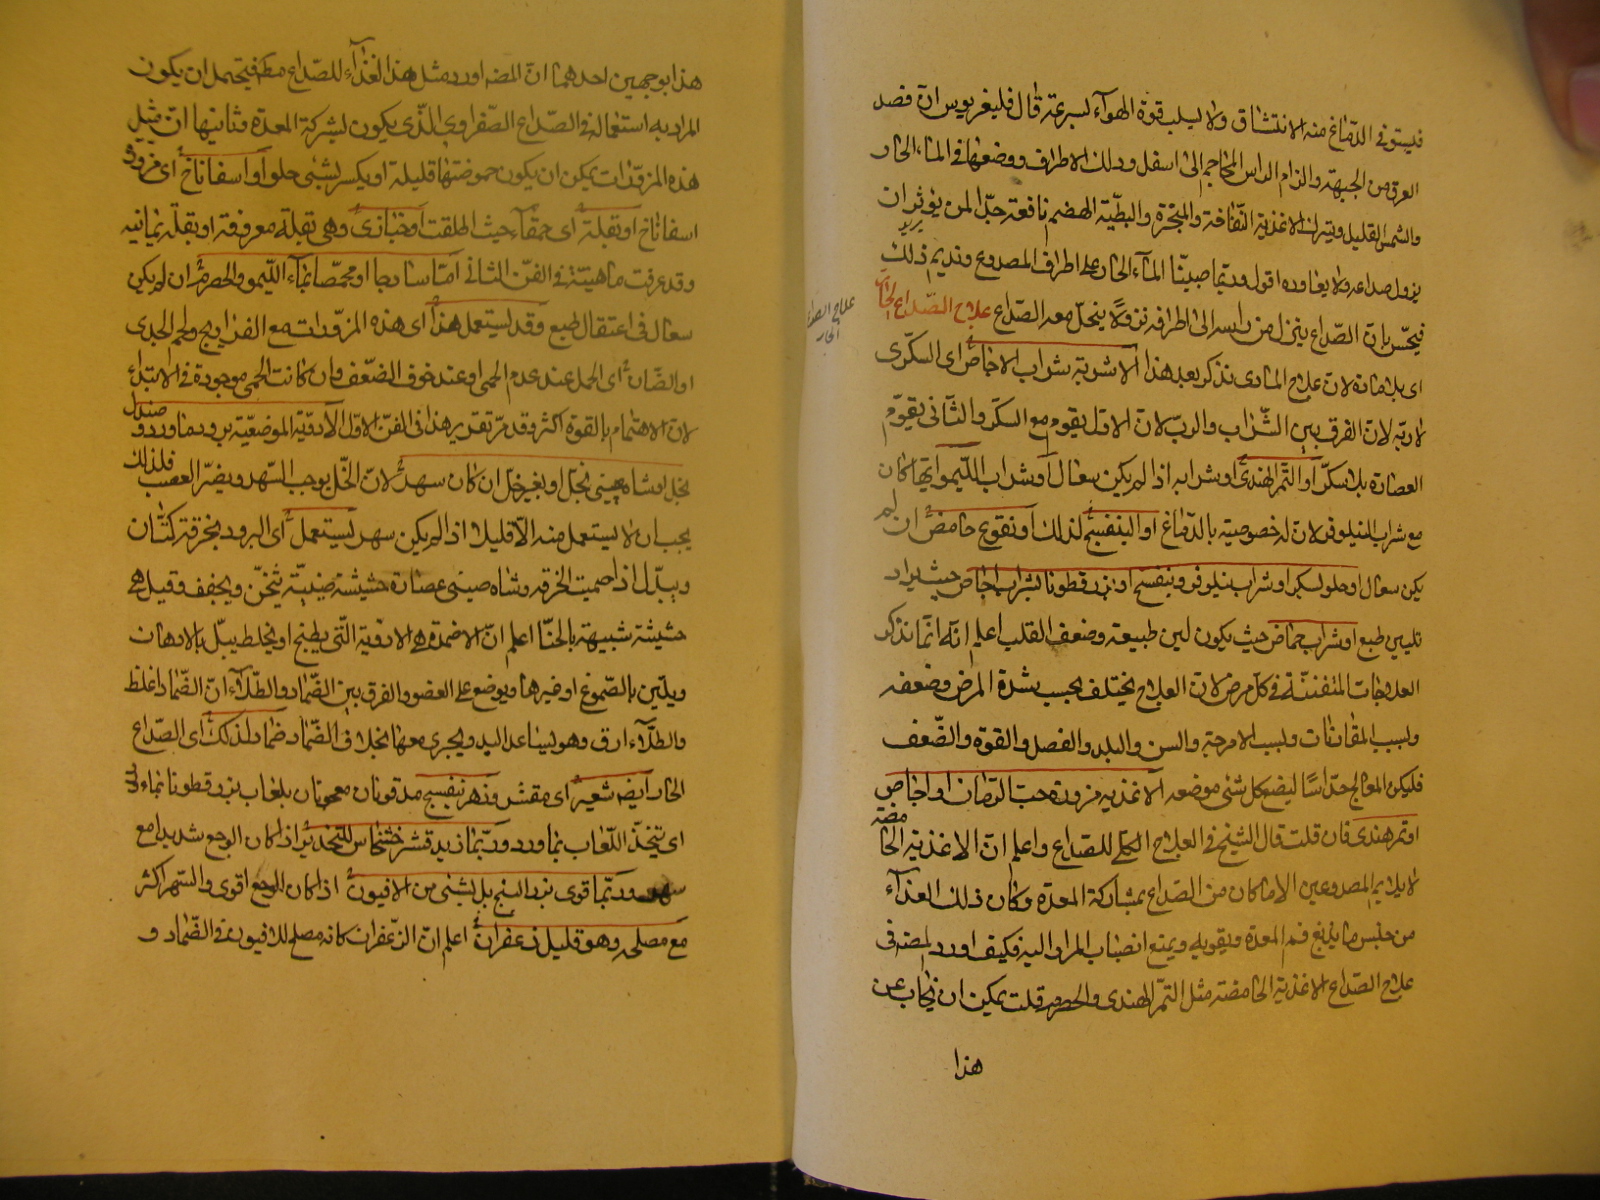 فيستوفى الدماغ منه الانتشاق ولا يسلب قوة الهوآء لسرعته قال فليغريوس ان فصد
العرق من الجبهة والزام الراس المحاجم الى اسفل ودلك الاطراف ووضعها فى الماء الحار
والشمس القليل ويترك الاغذية النفاخة والمبخرة والبطيّة الهضم نافعة جدّا لمن يؤثر ان
يزول صداعه ولا يعاوده اقول وربما صببنا المآء الحار على اطراف المصدوع ونديم ذلك
فيحسّ بان الصّداع ينزل من راسه الى اطرافه نزولًا ينحلّ معه الصّداع علاج الصّداع الحارّ
علاج الصداع
الحار
اى بلا مادة لان علاج المادى نذكر بعد هذا الاشربة شراب الاجاص اى السكرى
لا ربّه لان الفرق بين الشّراب والربّ لان الاول يقوم مع السكر والثّانى يقوّم
العصارة بلا سكّر او التّمر الهندى او شرابه اذا لم يكن سعال او شراب اللّيمو ايّها كان
مع شراب النيلوفر لان له خصوصية بالدّماغ او البنفسج لذلك او نقوع حامض ان لم
يكن سعال او حلو لسكر او شراب نيلوفر وبنفسج او بزر قطونا بشراب اجاص حيث يراد
تليين طبع او شراب حماض حيث يكون لين طبيعة وضعف القلب اعلم انّه انّما نذكر
العلاجات المتفننّة فى كلّ مرض لان العلاج يختلف بحسب شدة المرض وضعفه
وبسبب المقارنات وبسبب الامزجة والسن والبلد والفصل والقوة والضّعف
فليكن المعالج حدّاسًا ليضع كل شئى موضعه الاغذيه مزورة حبّ الرمان او اجاص
او تمر هندى فان قلت قال الشّيخ فى العلاج الكلى للصّداع واعلم انّ الاغذية الحامضة
لا يلايم المصدوعين الا ما كان من الصّداع بمشاركة المعدة وكان ذلك الغذآء
من جنس ما يدبغ فم المعدة ويقويه ويمنع انصباب المرار اليه فكيف اورد المصنه فى
علاج الصّداع الاغذية الحامضة مثل التمّر الهندى والحصرم قلت يمكن ان يجاب عن
هذا
هذا بوجهين احدهما انّ المصنه اورد مثل هذا الغذآء للصّداع مطه فيحتمل ان يكون
المراد به استعماله فى الصّداع الصّفراوى الّذى يكون بشركة المعدة وثانيها انّ مثل
هذه المزوّرات يمكن ان يكون حموضتها قليلة او يكسر بشئى حلو او اسفاناخ اى مزورة
اسفاناخ او بقلة اى حمقآء حيث اطلقت او خبازى وهى بقلة معروفة او بقلة يمانيه
وقد عرفت ماهيّته فى الفنّ الثانى امّا ساذجا او محمّصا بمآء اللّيمو والحصرم ان لم يكن
سعال فى اعتقال طبع وقد يستعمل هذا اى هذه المزوّرات مع الفراريج ولحم الجدى
او الضّان اى الحمل عند عدم الحمى او عند خوف الضّعف وان كانت الحمى موجودة فى الابتداء
لان الاهتمام بالقوة اكثر وقد مرّ تقرير هذا فى الفنّ الاول الادويّة الموضعيّة برود بماورد وصندل
بخل او شاه صينى بخل او بغير خل ان كان سهر لانّ الخّل يوجب السّهر ويضرّ العصب فلذلك
يجب ان لا يستعمل منه الّا قليلا اذا لم يكن سهر يستعمل اى البرود بخرقة كتّان
ويبدّل اذا حميت الخرقه وشاه صينى عصارة حشيشة صينيّة تثخّن ويجفف وقيل هى
حشيشة شبيهة بالحنّا اعلم انّ الاضمدة هى الادوية الّتى يطبخ او يخلط يبلّ بالادهان
ويليّن بالصّموغ او غيرها ويوضع على العضو والفرق بين الضّماد والطّلآء انّ الضّماد اغلظ
والطّلآء ارق وهو يساعد اليد ويجرى معها بخلاف الضّماد ضماد لذلك اى الصّداع
الحار ايضه شعير اى مقشر وزهر بنفسج مدقوقان معجونان بلعاب بزر قطونا بماء ورد
اى يتّخذ اللّعاب بماورد وربّما زيد قشر خشخاش للتخدير اذا كان الوجع شديدا مع
سهر وربّما قوى بزر البنج بل بشئى من الافيون اذا كان الوجع اقوى والسّهر اكثر
مع مصلحه وهو قليل زعفران اعلم انّ الزّعفران كانه مصلح للافيون فى الضّماد و